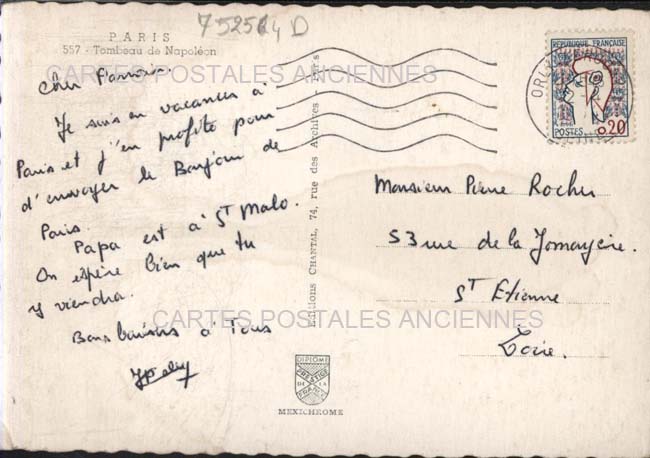 752564 D
PARIS
557 - Tombeau de Napoléon
CARTES POSTALES ANCIENNES
Cher Parrain.
Je suis en vacances à
Paris et j'en profite pour
d'envoyer le Bonjour de
Paris.
Papa est à St Malo.
On espère bien que tu
y viendra.
Bons baisers à Tous
Editions CHANTAL, 74, rue des Archives - Paris
DIPLOME
PRESTIGE
DE LA
FRANCE
MEXICHROME
ORLY
REPUBLIQUE FRANÇAISE
POSTES 0,20
Monsieur Pierre Rocher
53 rue de la
St Etienne
Loire.
CARTES POSTALES ANCIENNES